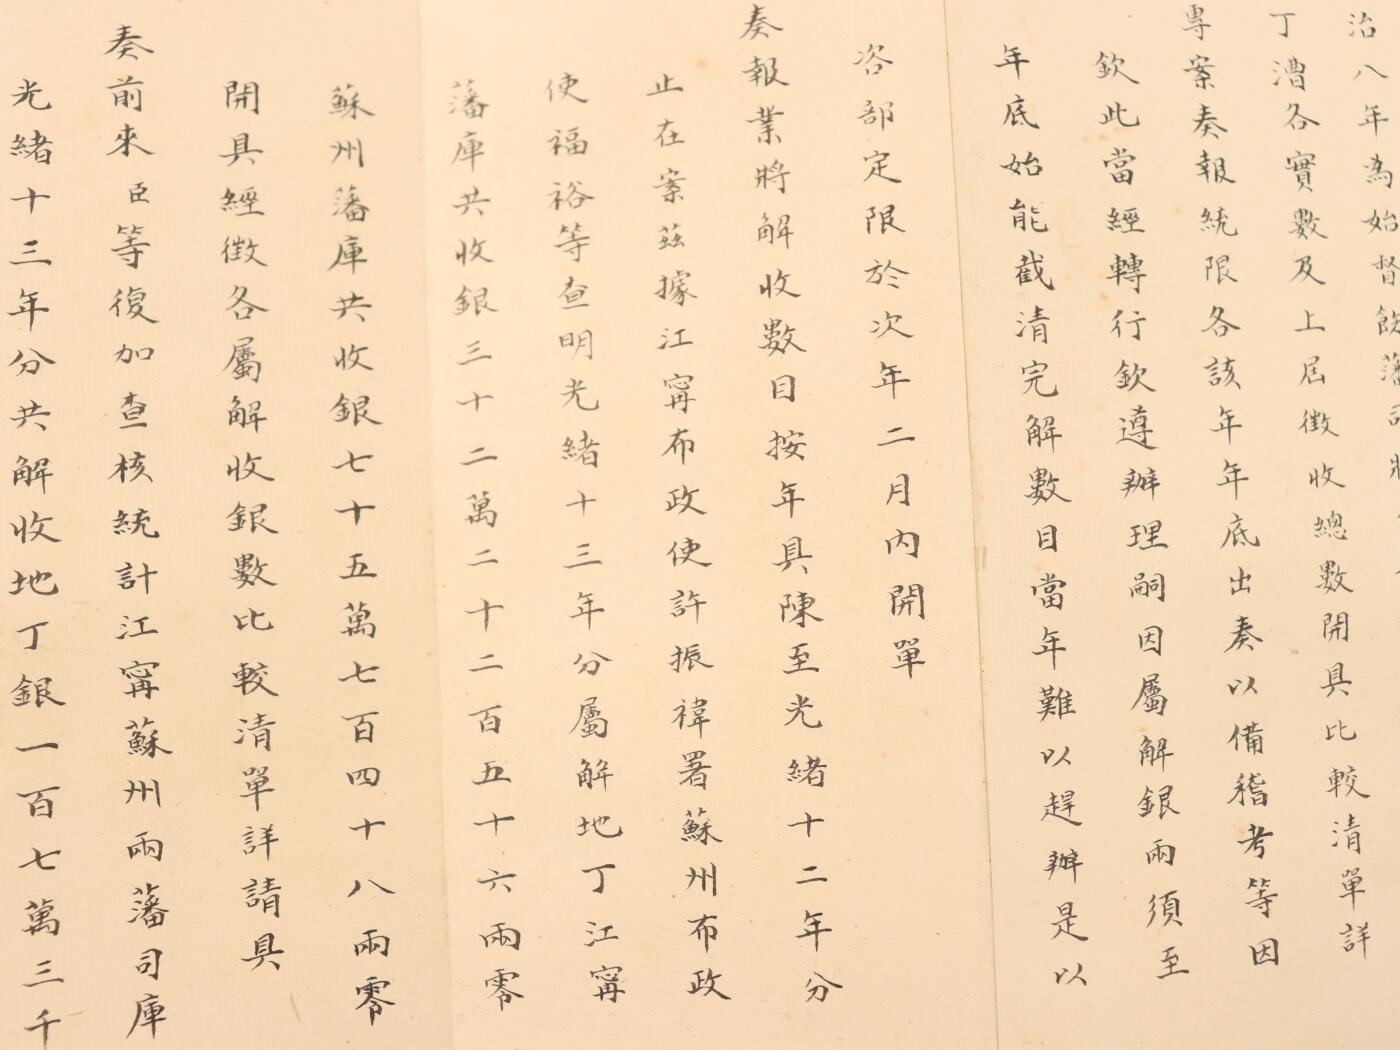 治八年為始督飲藩司將
丁漕各實數及上屆徵收總數開具比較清單詳
專案奏報統限各該年年底出奏以備稽考等因
欽此當經轉行欽遵辦理嗣因屬解銀兩須至
年底始能截清完解數目當年難以趕辦是以
咨部定限於次年二月內開單
奏報業將解收數目按年具陳至光緒十二年分
止在案茲據江寧布政使許振禕署蘇州布政
使福裕等查明光緒十三年分屬解地丁江寧
藩庫共收銀三十二萬二十二百五十六兩零
蘇州藩庫共收銀七十五萬七百四十八兩零
開具經徵各屬解收銀數比較清單詳請具
奏前來臣等復加查核統計江寧蘇州兩藩司庫
光緒十三年分共解收地丁銀一百七萬三千